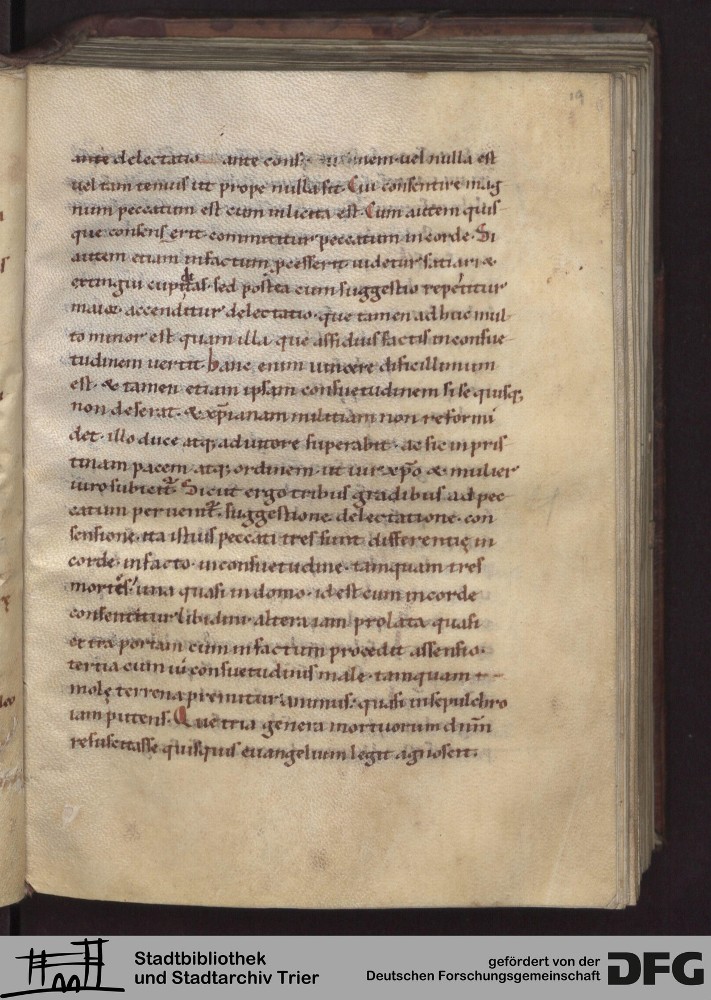 19
ante delectatio ante cons nem uel nulla est
uel tam tenuis ut prope nulla sit. Cui consentire mag
num peccatum est cum inlicita est. Cum autem quis
que consenserit committitur peccatum in corde. Si
autem etiam in factum pcesserit uidetur satiari &
extingui cupi&tas. sed postea cum suggestio repetitur
maior accenditur delectatio. que tamen adhuc mul
to minor est quam illa que assiduis factis in consue
tudinem uertit. hanc enim uincere dificillimum
est. & tamen etiam ipsam consuetudinem si se quisq;
non deserat. & xp̄ianam militiam non reformi
det. illo duce atq; adiutore superabit. ac sic in pris
tinam pacem atq; ordinem. ut uir xp̄o & mulier
uiro subicit. Sicut ergo tribus gradibus ad pec
catum peruenit. suggestione delectatione con
sensione. ita istius peccati tres sunt differentię in
corde. in facto. in consuetudine. tamquam tres
mortes. una quasi in domo. id est cum in corde
consentitur libidini. altera iam prolata quasi
extra portam cum in factum procedit assensio.
tertia cum ui consuetudinis male. tamquam
molę terrena premitur animus. quasi in sepulchro
iam putens. Que tria genera mortuorum dnm̄
resuscitasse quisquis euangelium legit agnoscit.
Stadtbibliothek
und Stadtarchiv Trier
gefördert von der
Deutschen Forschungsgemeinschaft
DFG